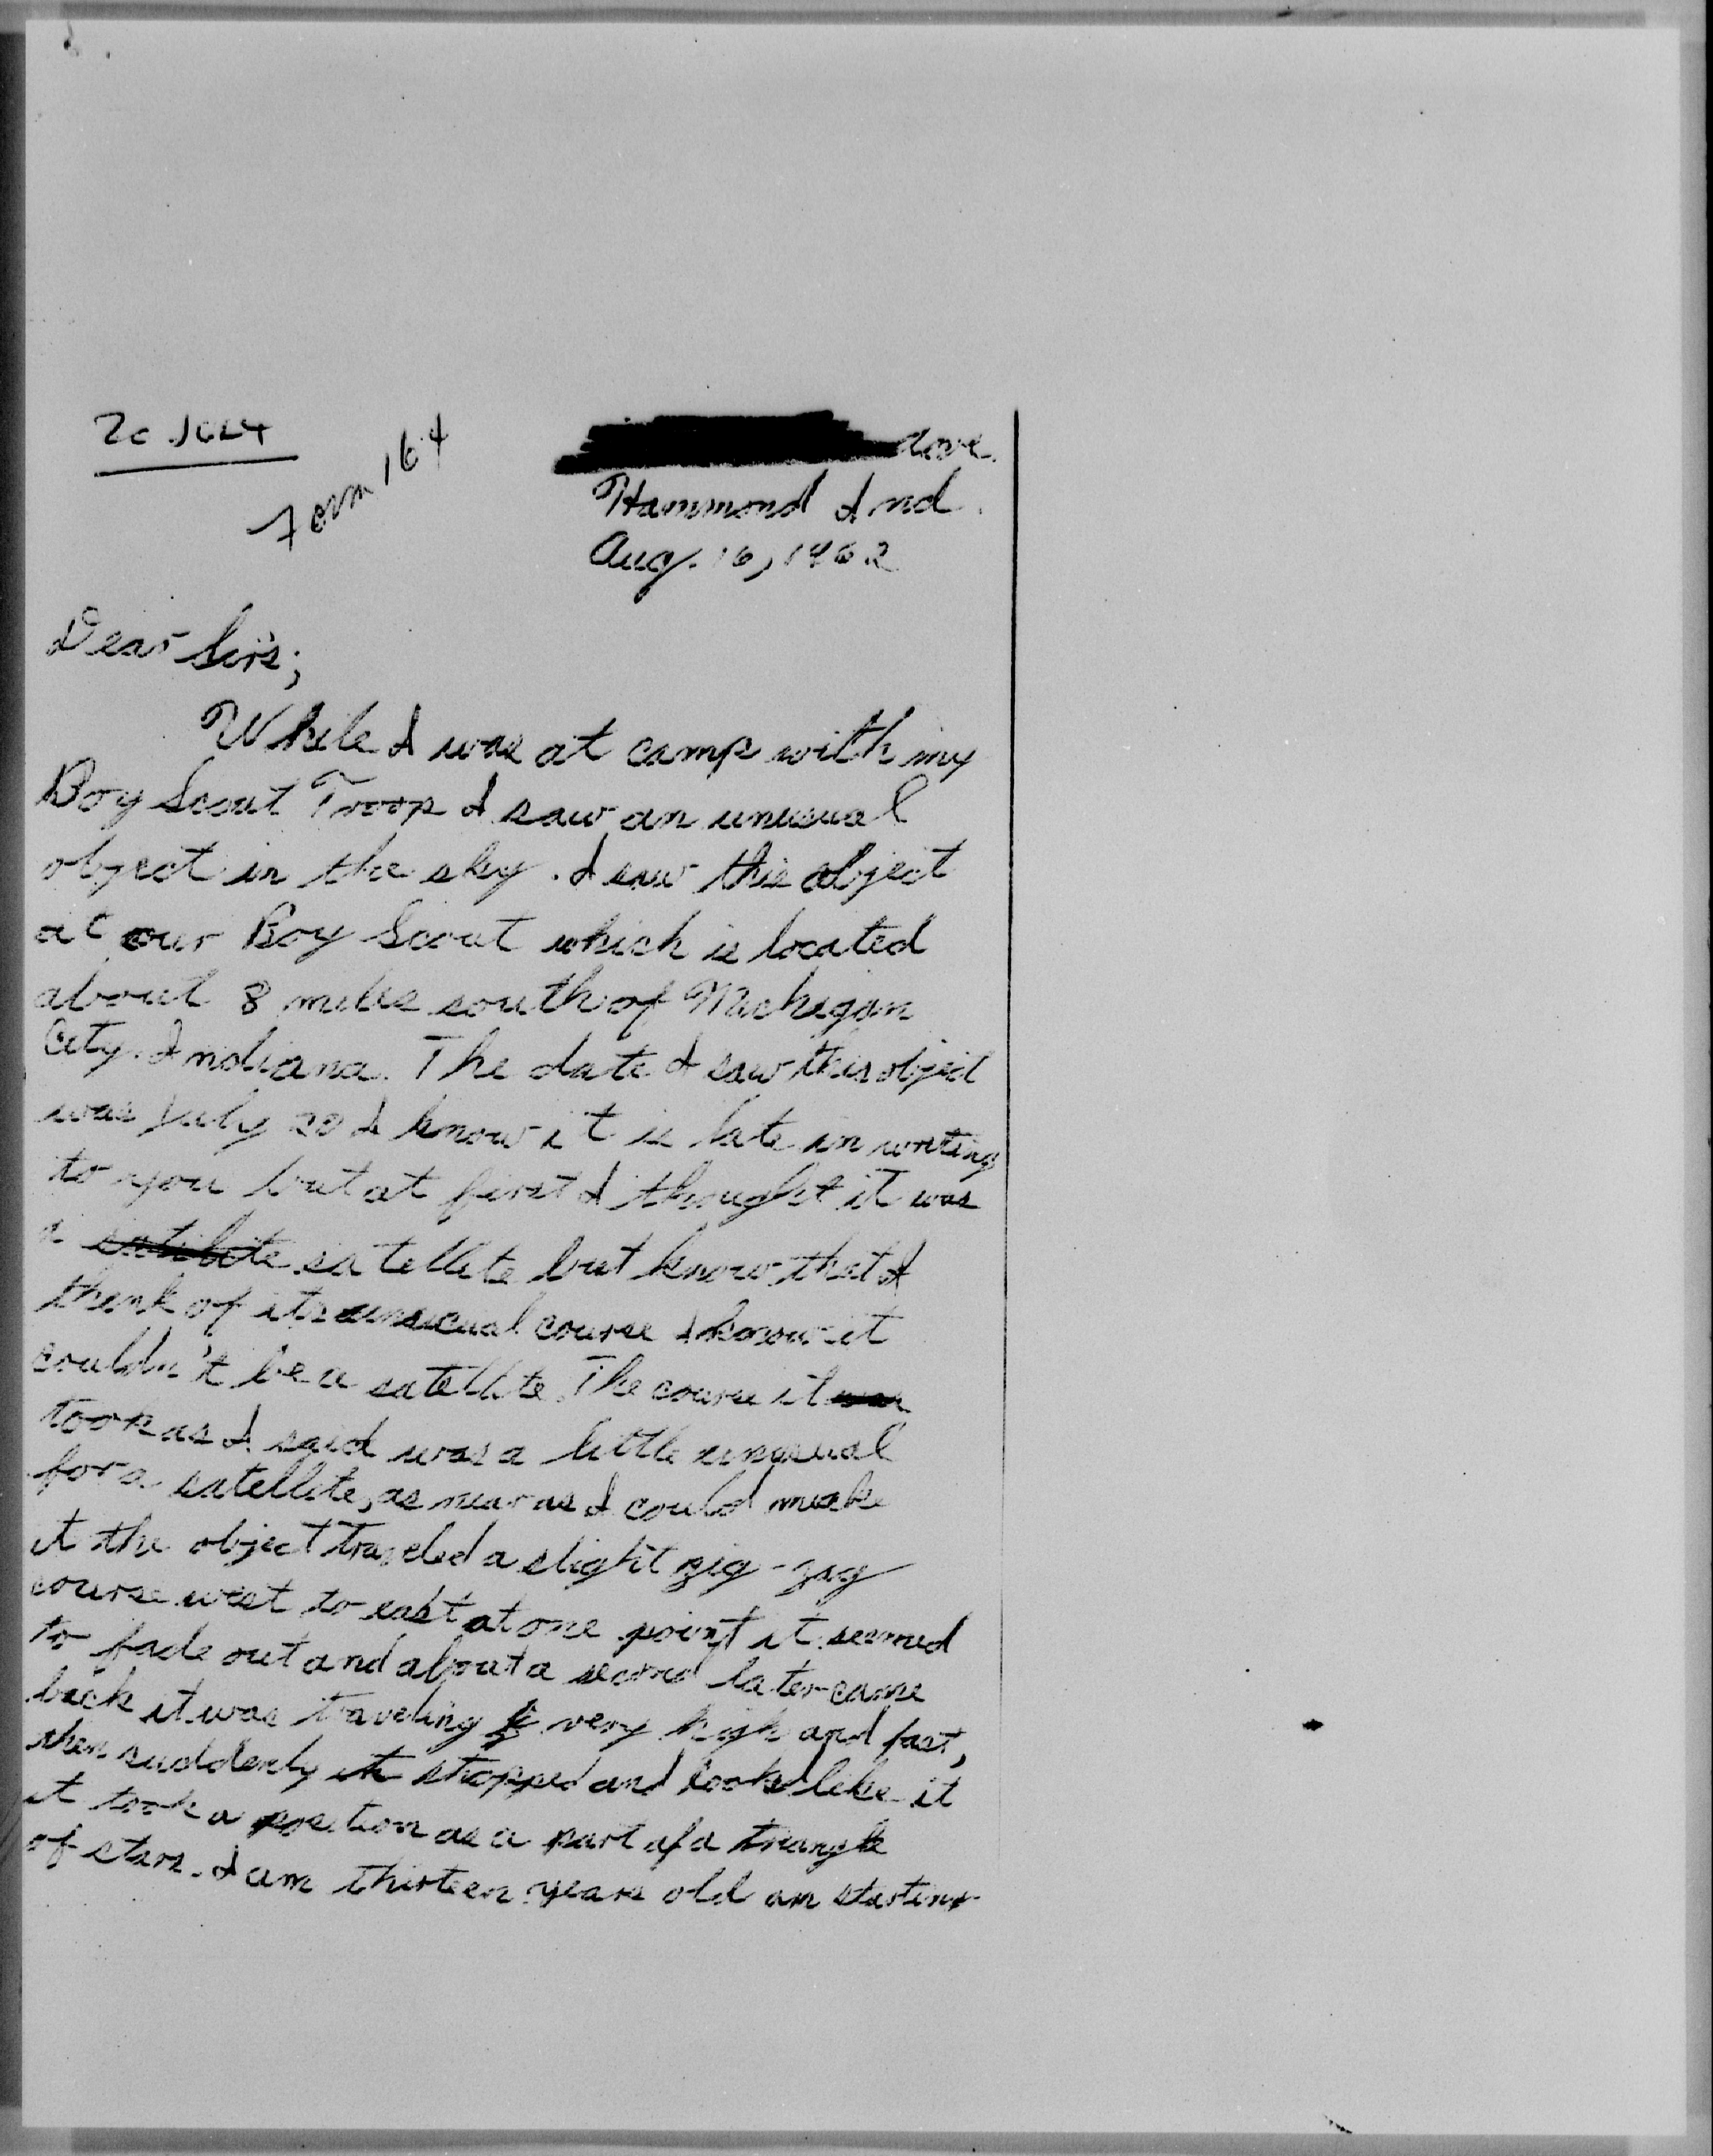 20 JULY
Form 164
Ave.
Hammond Ind.
Aug. 16, 1962
Dear Sirs;
While I was at camp with my
Boy Scout Troop I saw an unusual
object in the sky. I saw this object
at our Boy Scout which is located
about 8 miles south of Michigan
City. Indiana. The date I saw this object
was July 20 I know it is late in writing
to you but at first I thought it was
a satellite but know that I
think of its unusual course I know it
couldn't be a satellite. The course it was
took as I said was a little unusual
for a satellite, as near as I could make
it the object traveled a slight zig-zag
course west to east at one point it seemed
to fade out and about a second later came
back it was traveling very high and fast,
then suddenly it stopped and looked like it
it took a position as a part of a triangle
of stars. I am thirteen years old am starting